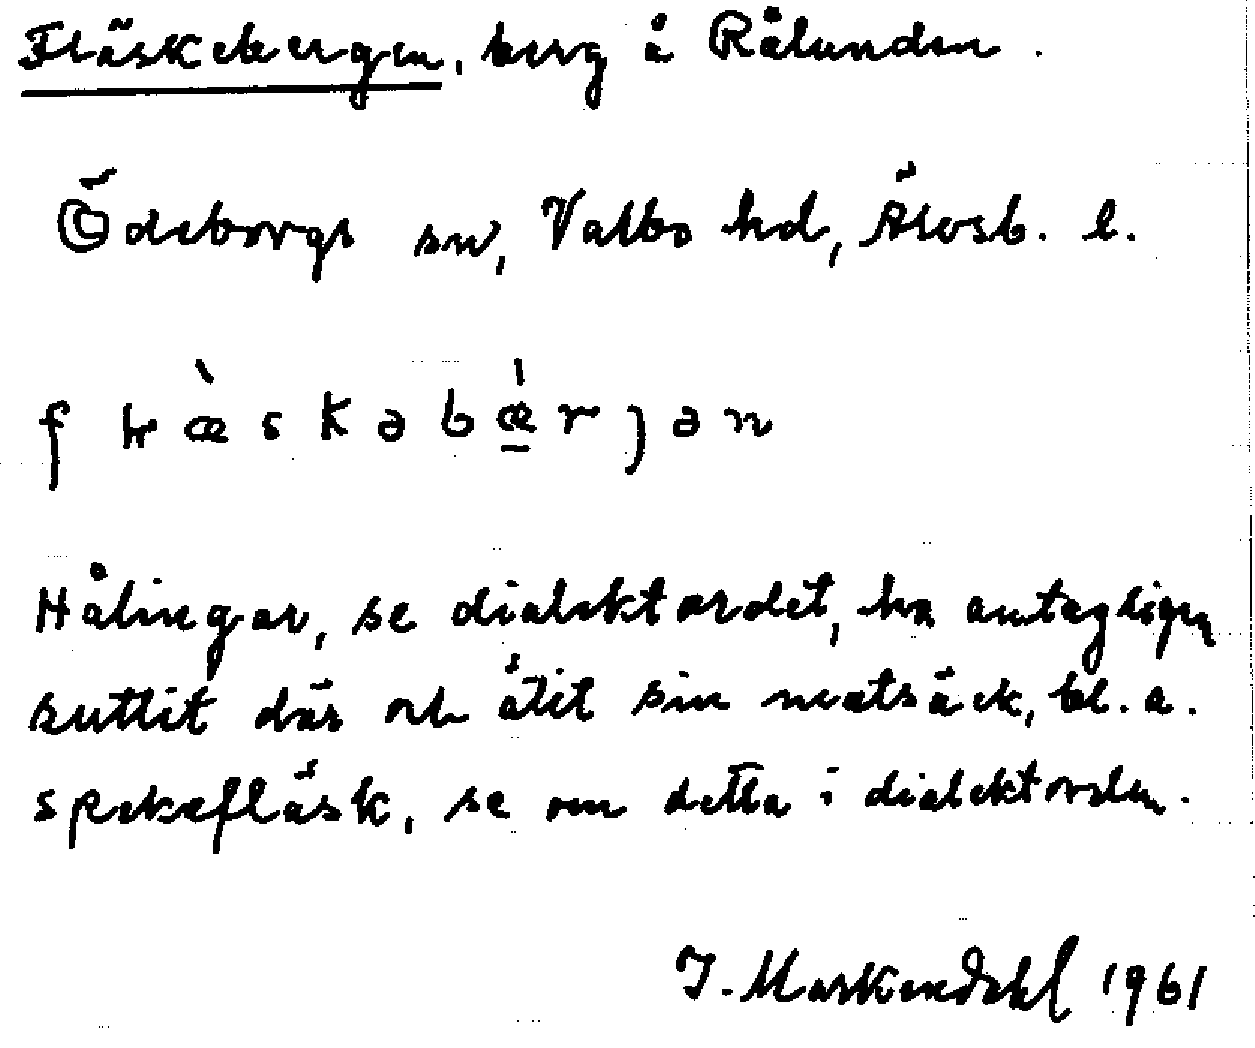 Fläskebergen, berg å Rålunden.
Ödeborgs sn, Valbo hd, Älvsb. l.
Hålingar, se dialektordet, ha antagligen
suttit där och ätit sin matsäck, bl. a.
spekefläsk, se om detta i dialektorden.
J. Markendahl 1961